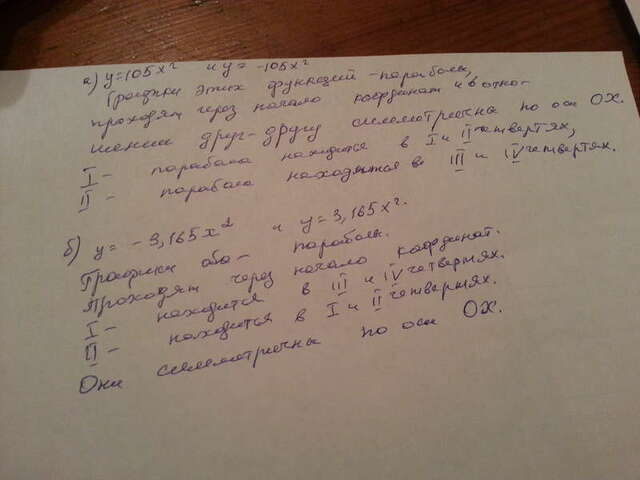 а) y=105x² и y= -105x²
Графики этих функций - параболы,
проходят через начало координат и в отно-
шении друг-другу симметричны по оси OX.
I - парабола находится в I и II четвертях,
II - парабола находятся в III и IV четвертях.
б) y= -3,165x² и y=3,165x².
Графики обо- параболы.
Проходят через начало координат.
I - находится в III и IV четвертях.
II - находится в I и II четвертях.
Они симметричны по оси OX.